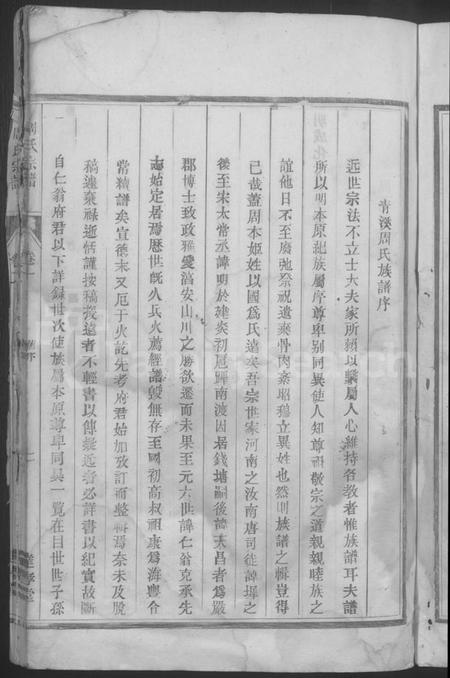 青溪周氏族譜序
近世宗法不立士大夫家所賴以繫屬人心維持名教者惟族譜耳夫譜
所以明本原紀族屬序尊卑别同異使人知尊祖敬宗之道親親睦族之
誼他日不至廢弛祭祀遺棄骨肉紊昭穆立異姓也然則族譜之輯豈得
已哉蓋周本姬姓以國為氏遠矣吾宗世家河南之汝南唐司徒諱墀之
後至宋太常丞諱明於建炎初扈蹕南渡因居錢塘嗣後諱天昌者為嚴
郡博士致政雅愛淳安山川之勝欲遷而未果至元六世諱仁翁克承先
志始定居焉歷世旣久兵火薦經譜毀無存至國初高叔祖康為海興令
嘗積譜矣宣德末又厄于火訖先考府君始加攷訂而整輯焉奈未及脫
稿遽棄祿逝恆謹按稿叙遠者不輕書以傳疑近者必詳書以紀實故斷
自仁翁府君以下詳録世次使族屬本原尊卑同異一覽在目世世子孫
周氏宗譜
卷一
序
二